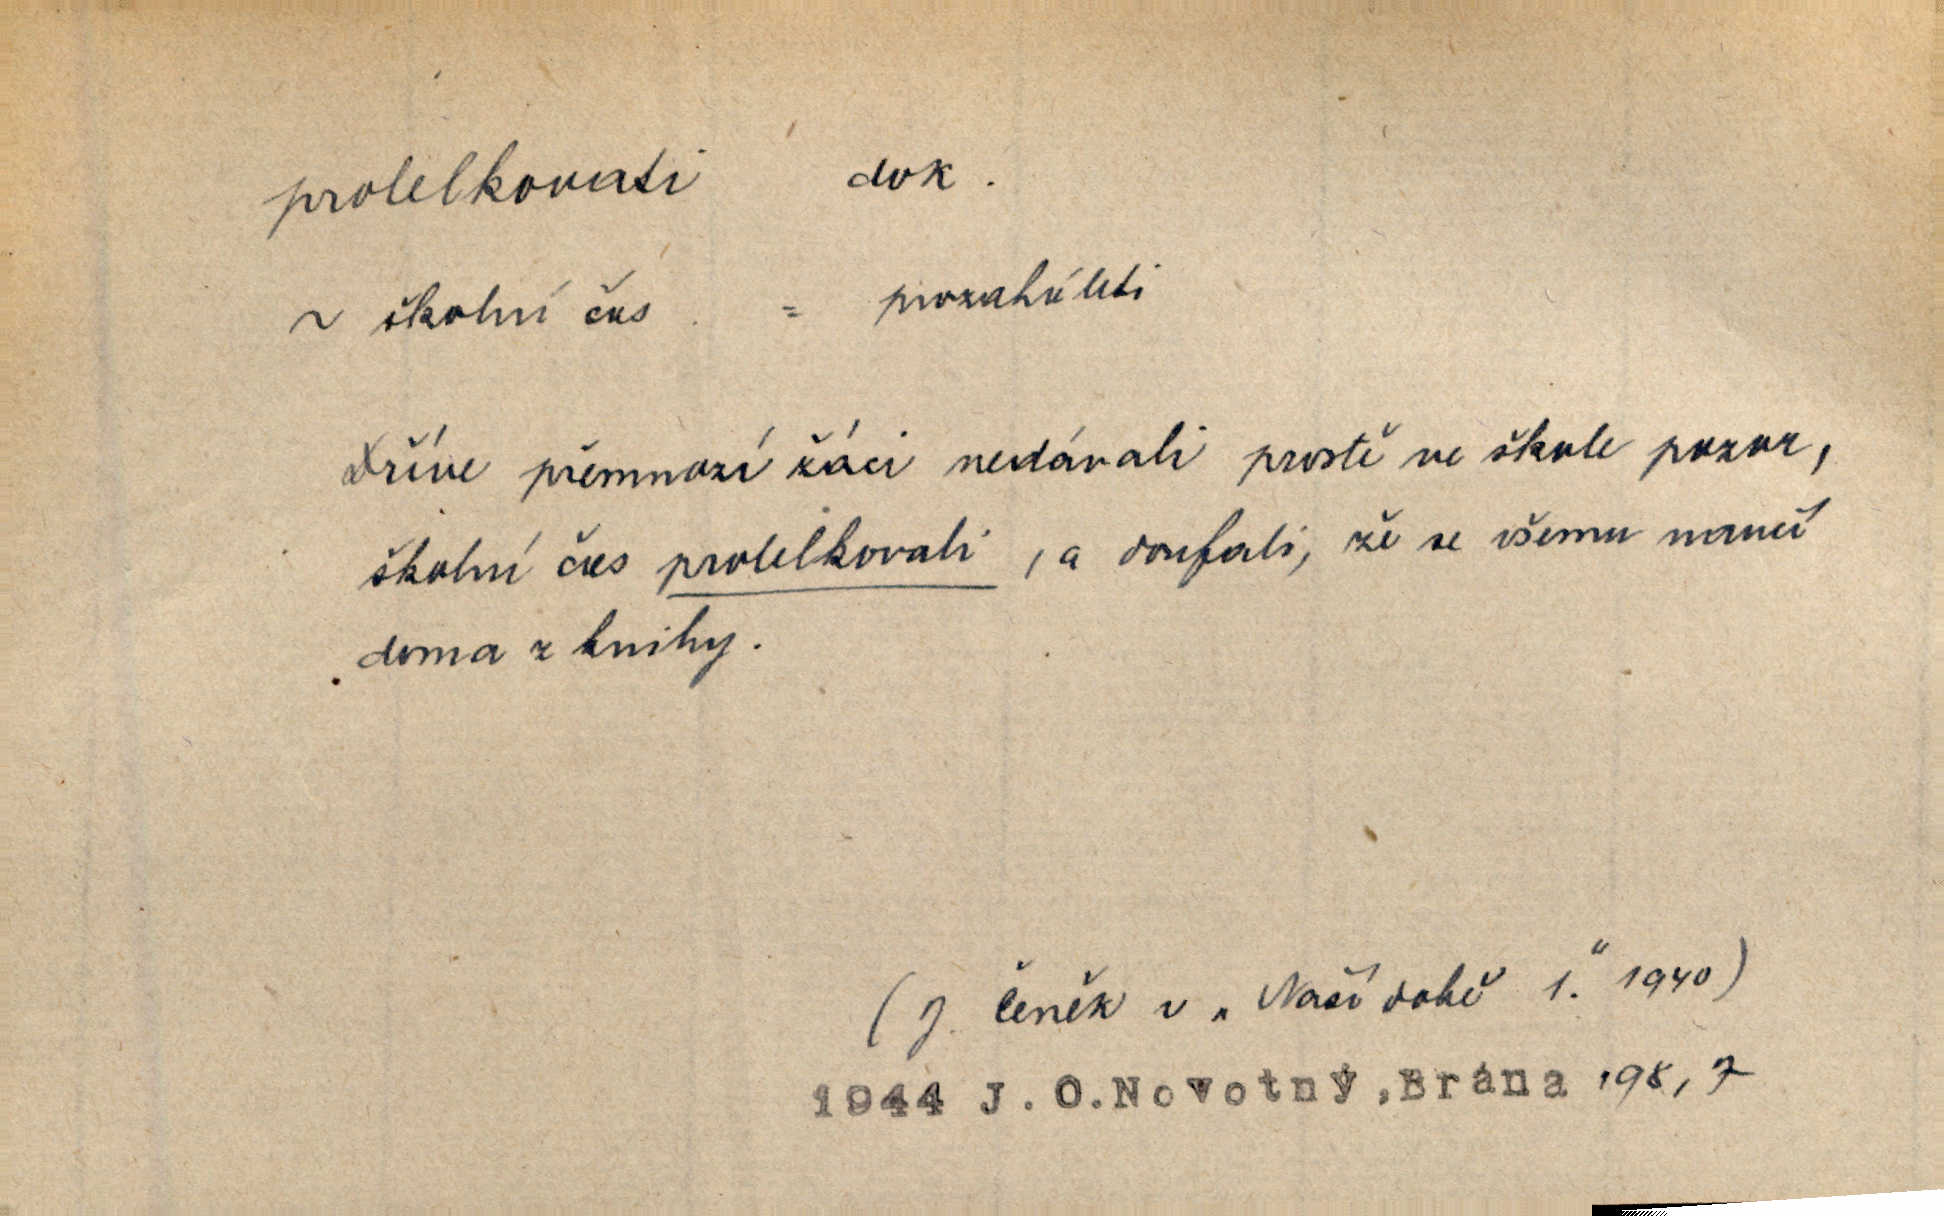 prolelkovati dok.
~ školní čas = prozaháleti
Dříve přemnozí žáci nedávali prostě ve škole pozor,
školní čas prolelkovali, a doufali, že se všemu naučí
doma z knihy.
(J. Čeněk v „Naší době 1." 1940)
1944 J.O.Novotný,Brána 198,7